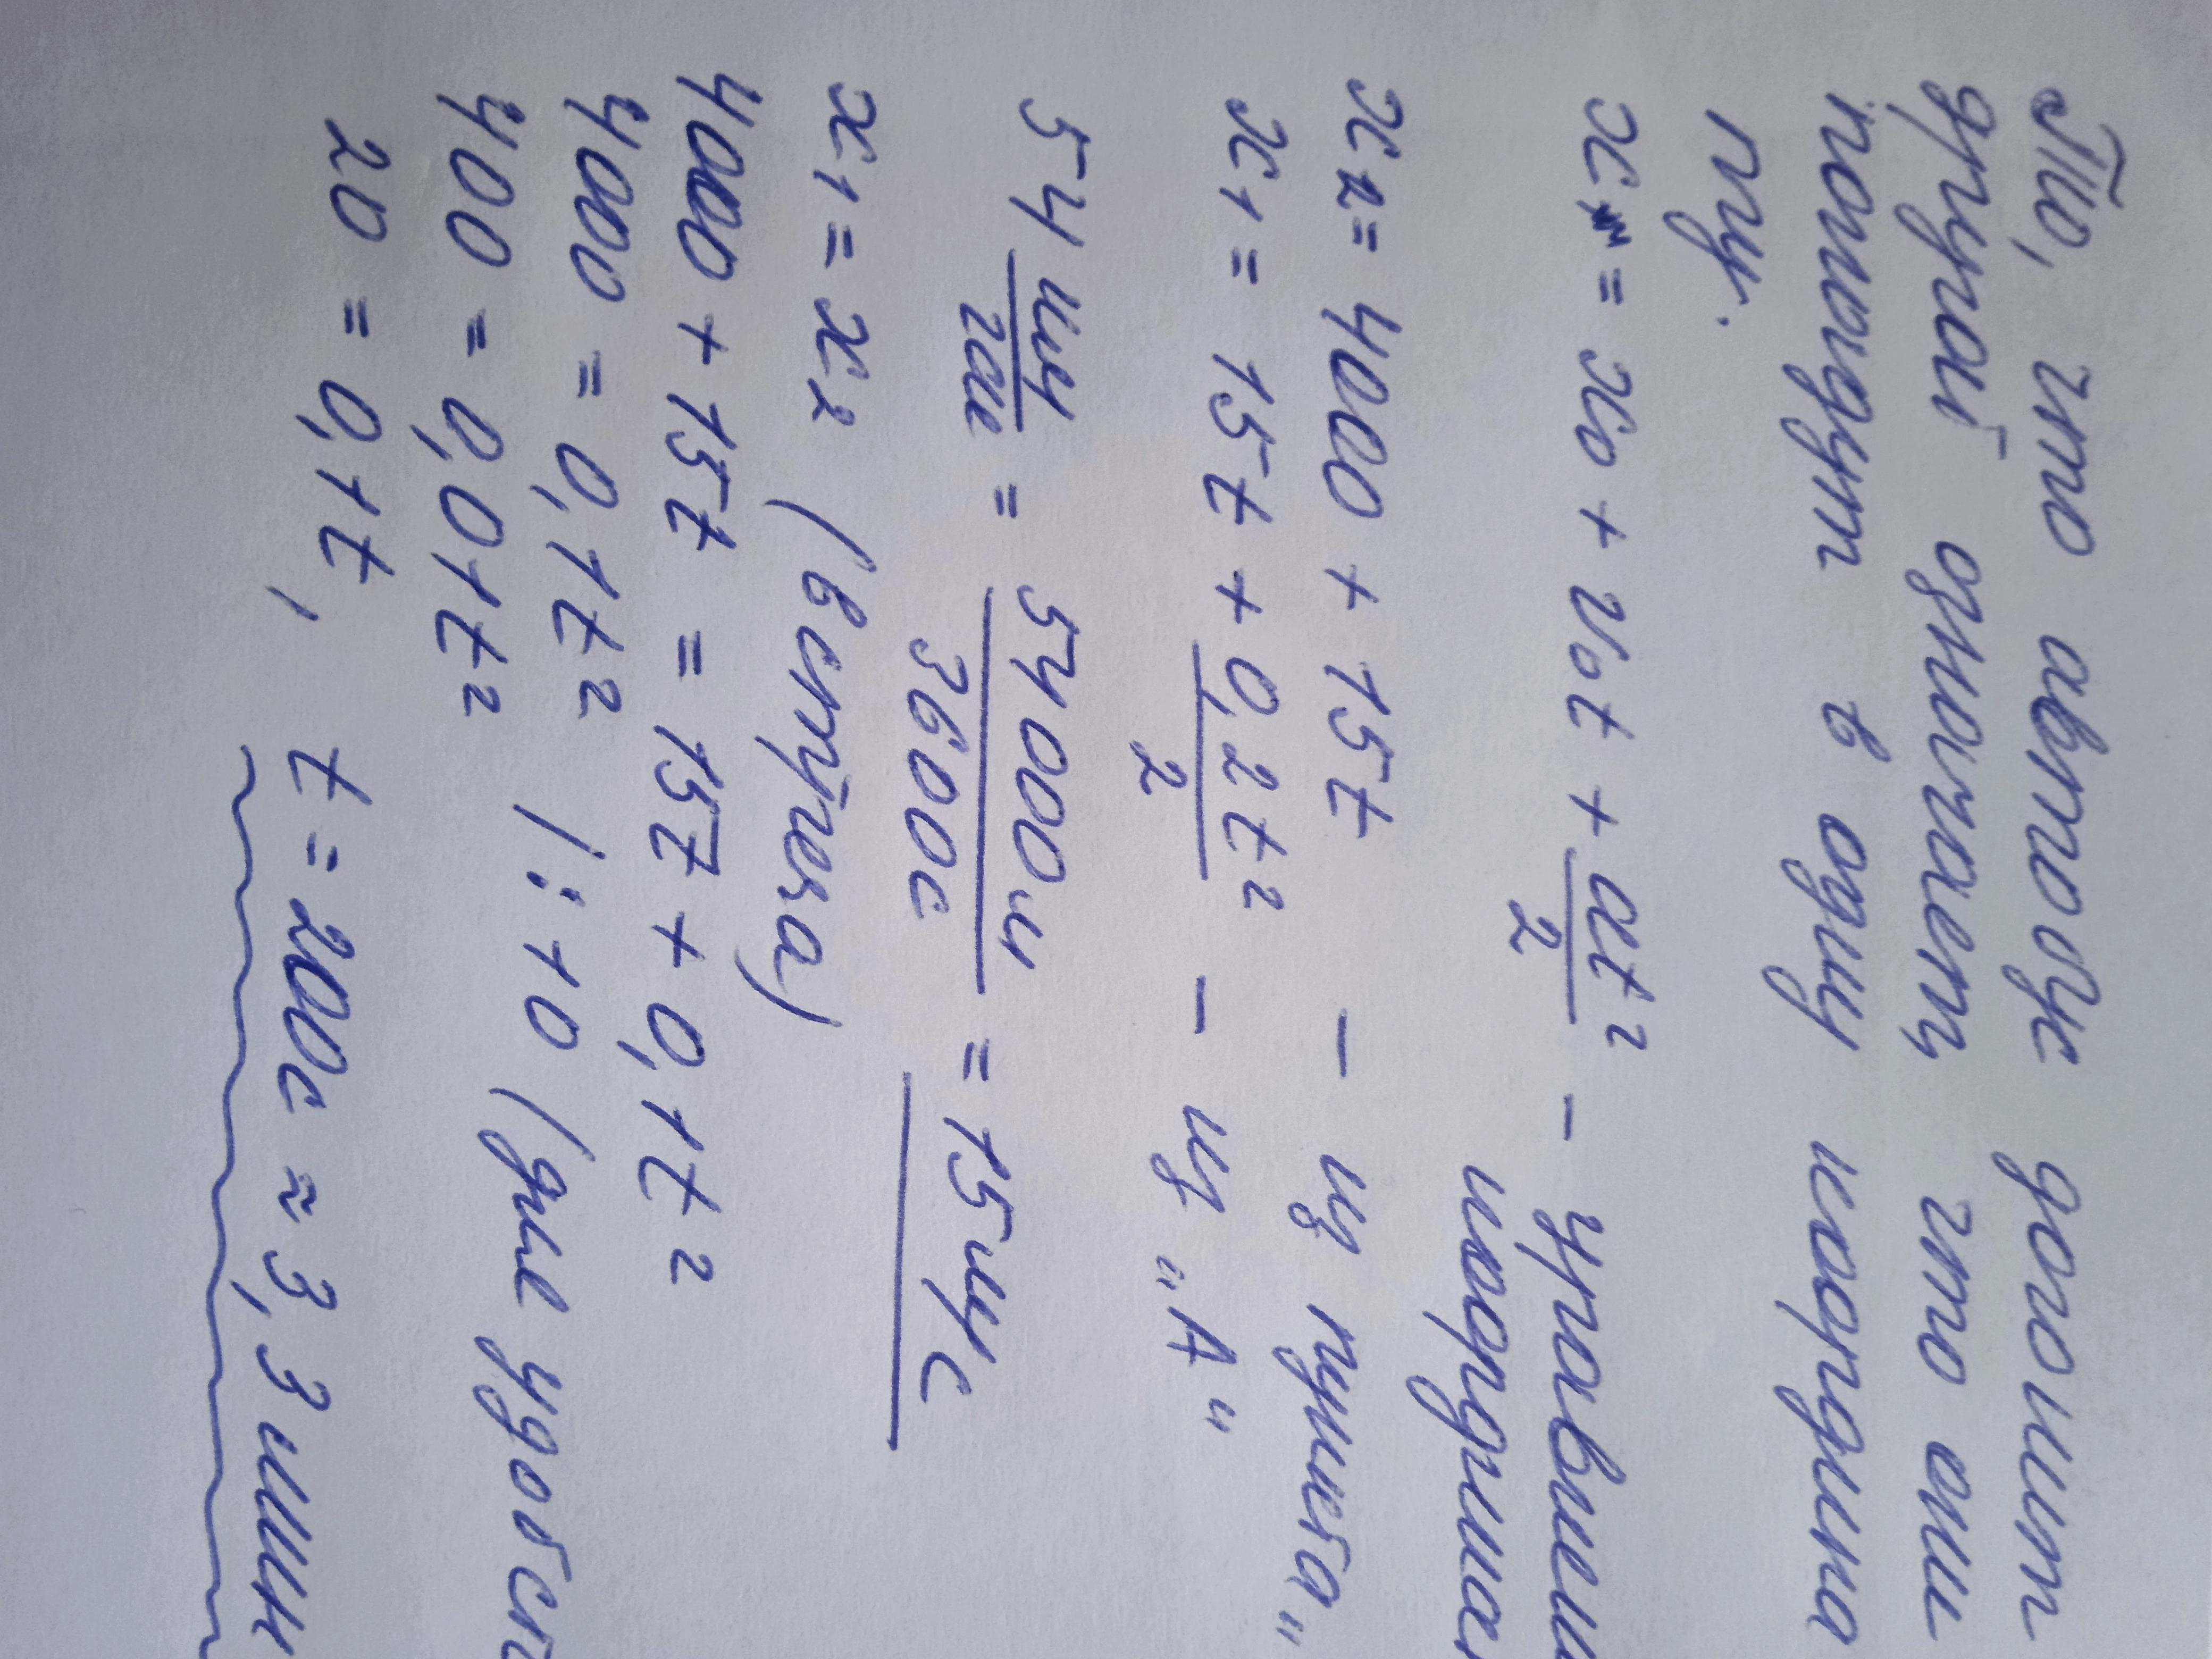 То, что автобус догонит
другой означает что они
попадут в одну координа
ту.
x = x₀ + v₀t + at²/2 – уравнен
координа
x₂ = 4000 + 15t – из пункта „
x₁ = 15t + 0,2t²/2 – из „А“
54 км/час = 54000м/3600с = 15м/с
x₁ = x₂ (встреча)
4000 + 15t = 15t + 0,1t²
4000 = 0,1t²
400 = 0,01t² | : 10 (для удобст
20 = 0,1t, t = 200с ≈ 3,3 мин